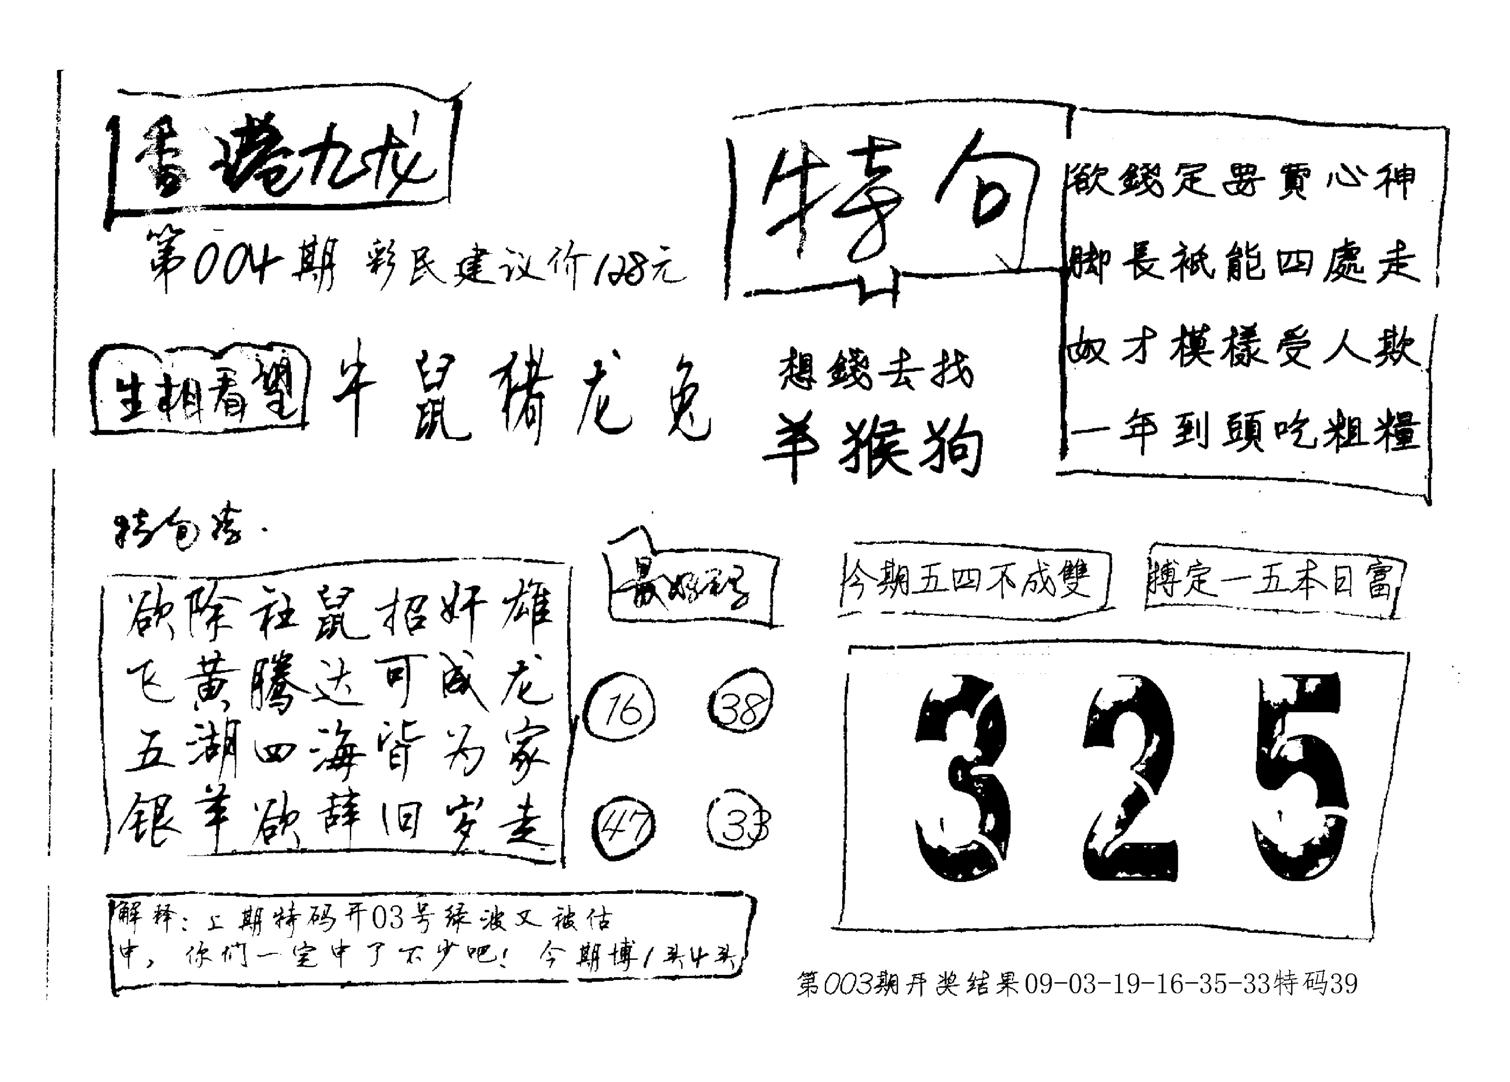 香港九龙
第004期 彩民建议价128元
特句
欲錢定要費心神
脚長祇能四處走
奴才模樣受人欺
一年到頭吃粗糧
生相看望 牛鼠猪龙兔
想錢去找
羊猴狗
特句诗.
欲除社鼠招奸雄
飞黄腾达可成龙
五湖四海皆为家
银羊欲辞旧岁走
最好码
16 38
47 33
今期五四不成雙
搏定一五本日富
325
解释：上期特码开03号绿波又被估
中，你们一定中了不少吧！今期博1头4头
第003期开奖结果09-03-19-16-35-33特码39